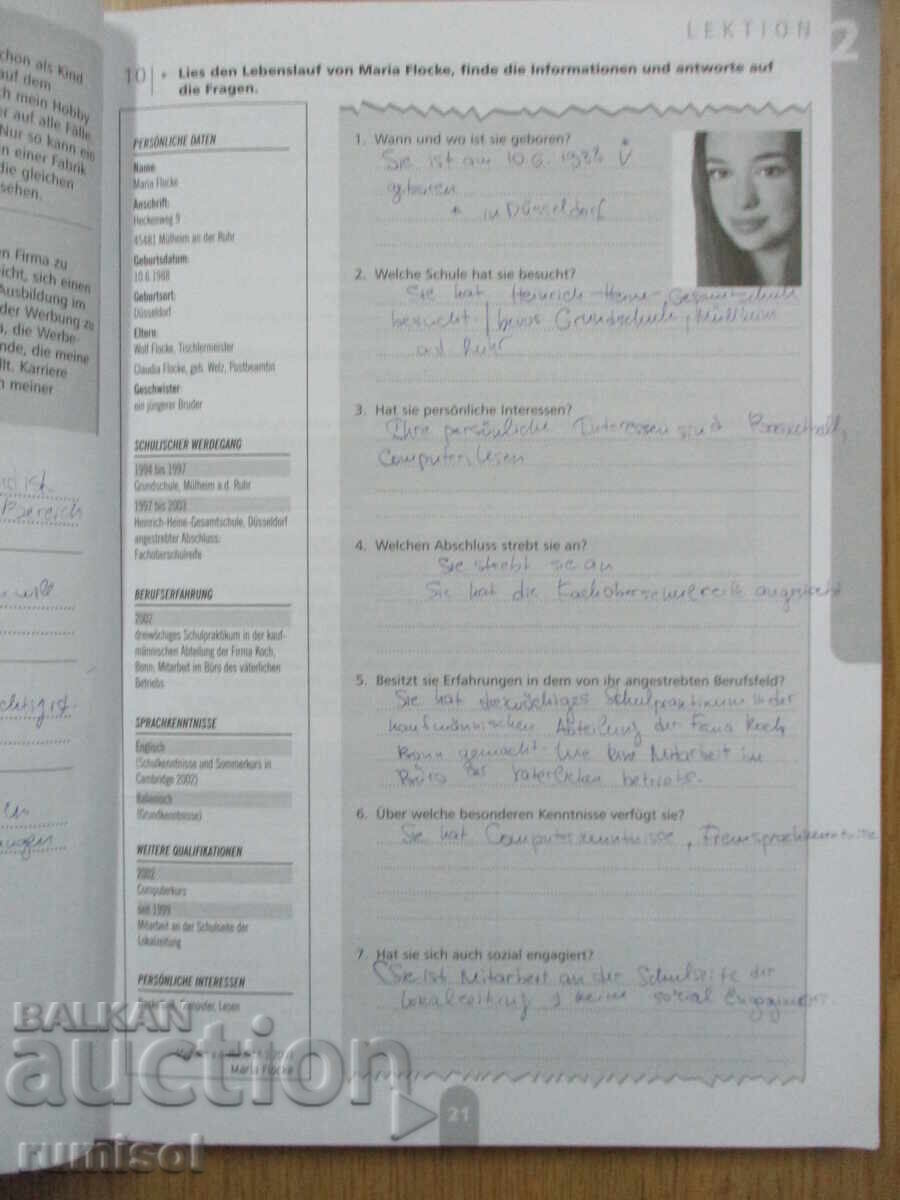 LEKTION 2
chon als Kind
auf dem
ch mein Hobby
er auf alle Fälle
Nur so kann ein
in einer Fabrik
die gleichen
sehen.
en Firma zu
eicht, sich einen
Ausbildung im
der Werbung zu
n, die Werbe-
nde, die meine
llt. Karriere
n meiner
ist
Bereich
10 Lies den Lebenslauf von Maria Flocke, finde die Informationen und antworte auf
die Fragen.
PERSÖNLICHE DATEN
Name
Maria Flocke
Anschrift:
Heckenweg 9
45481 Mülheim an der Ruhr
Geburtsdatum:
10.6.1988
Geburtsort:
Düsseldorf
Eltern:
Wolf Flocke, Tischlermeister
Claudia Flocke, geb. Welz, Postbeamtin
Geschwister:
ein jüngerer Bruder
SCHULISCHER WERDEGANG
1994 bis 1997
Grundschule, Mülheim a.d. Ruhr
1997 bis 2003
Heinrich-Heine-Gesamtschule, Düsseldorf
angestrebter Abschluss:
Fachoberschulreife
BERUFSERFAHRUNG
2002
dreiwöchiges Schulpraktikum in der kauf-
männischen Abteilung der Firma Koch,
Bonn; Mitarbeit im Büro des väterlichen
Betriebs
SPRACHKENNTNISSE
Englisch
(Schulkenntnisse und Sommerkurs in
Cambridge 2002)
Italienisch
(Grundkenntnisse)
WEITERE QUALIFIKATIONEN
2002
Computerkurs
seit 1999
Mitarbeit an der Schulseite der
Lokalzeitung
PERSÖNLICHE INTERESSEN
Computer, Lesen
Maria Flocke
1. Wann und wo ist sie geboren?
Sie ist am 10.6.1988
geboren
in Düsseldorf
2. Welche Schule hat sie besucht?
Sie hat Heinrich-Heine-Gesamtschule
besucht / Grundschule, Müllheim
a.d. Ruhr
3. Hat sie persönliche Interessen?
Ihre persönliche Interessen sind
Computer, Lesen
4. Welchen Abschluss strebt sie an?
Sie strebt sie an
Sie hat die Fachoberschulreife
5. Besitzt sie Erfahrungen in dem von ihr angestrebten Berufsfeld?
Sie hat Schulpraktikum in der
kaufmännischen Abteilung der Koch
Bonn gemacht Mitarbeit im
Büro des betriebs.
6. Über welche besonderen Kenntnisse verfügt sie?
Sie hat Computerkenntnisse,
7. Hat sie sich auch sozial engagiert?
Sie ist Mitarbeit an der Schulseite der
Lokalzeitung, keine sozial
21
BALKAN
auction
rumisol